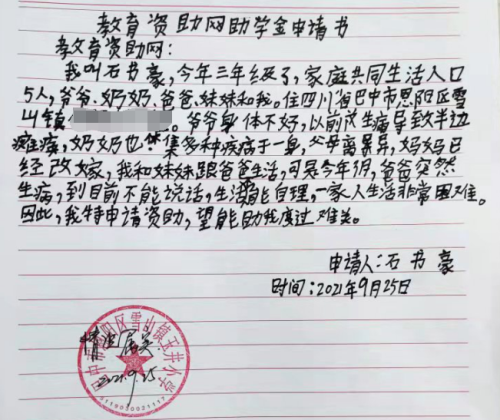 教育资助网助学金申请书
教育资助网：
我叫石书豪，今年三年级了，家庭共同生活人口
5人，爷爷、奶奶、爸爸、妹妹和我。住四川省巴中市恩阳区雪
山镇。爷爷身体不好，以前发生病导致半边
瘫痪，奶奶也集多种疾病于一身，父母离异，妈妈已
经改嫁，我和妹妹跟爸爸生活，可是今年月，爸爸突然
生病，到目前不能说话，生活能自理，一家人生活非常困难。
因此，我特申请资助，望能助我度过难关。
申请人：石书豪
时间：2021年9月25日
中市恩阳区雪山镇玉井小学
情况属实
2021.9.25
5119030021117